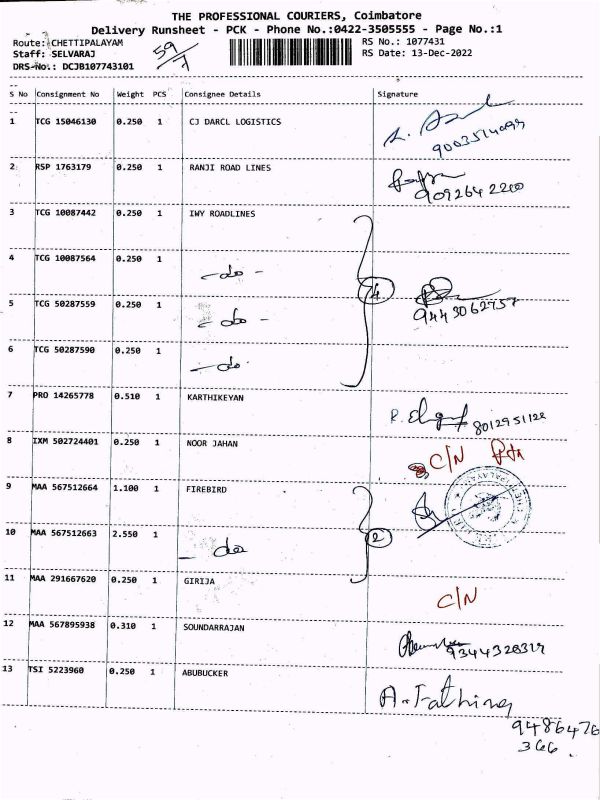 THE PROFESSIONAL COURIERS, Coimbatore
Delivery Runsheet - PCK - Phone No.:0422-3505555 - Page No.:1
Route: CHETTIPALAYAM
RS No.: 1077431
Staff: SELVARAJ
RS Date: 13-Dec-2022
DRS-No.: DCJB107743101
59/7
S No Consignment No Weight PCS Consignee Details Signature
1 TCG 15046130 0.250 1 CJ DARCL LOGISTICS
2 RSP 1763179 0.250 1 RANJI ROAD LINES
9092642200
3 TCG 10087442 0.250 1 IWY ROADLINES
4 TCG 10087564 0.250 1 - do -
4
5 TCG 50287559 0.250 1 - do -
9443062757
6 TCG 50287590 0.250 1 - do -
7 PRO 14265778 0.510 1 KARTHIKEYAN
8012951122
8 IXM 502724401 0.250 1 NOOR JAHAN C/N
9 MAA 567512664 1.100 1 FIREBIRD
10 MAA 567512663 2.550 1 - do
2
11 MAA 291667620 0.250 1 GIRIJA C/N
12 MAA 567895938 0.310 1 SOUNDARRAJAN
13 TSI 5223960 0.250 1 ABUBUCKER
A. Fathima
9486476
366.